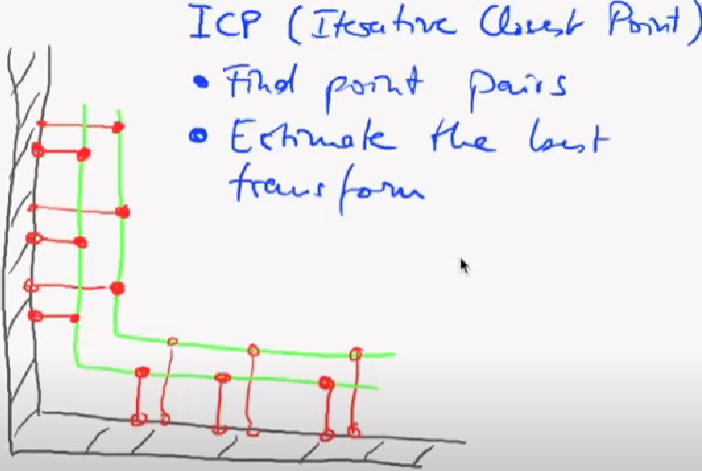 ICP (Iterative Closest Point)
• Find point pairs
• Estimate the best
transform